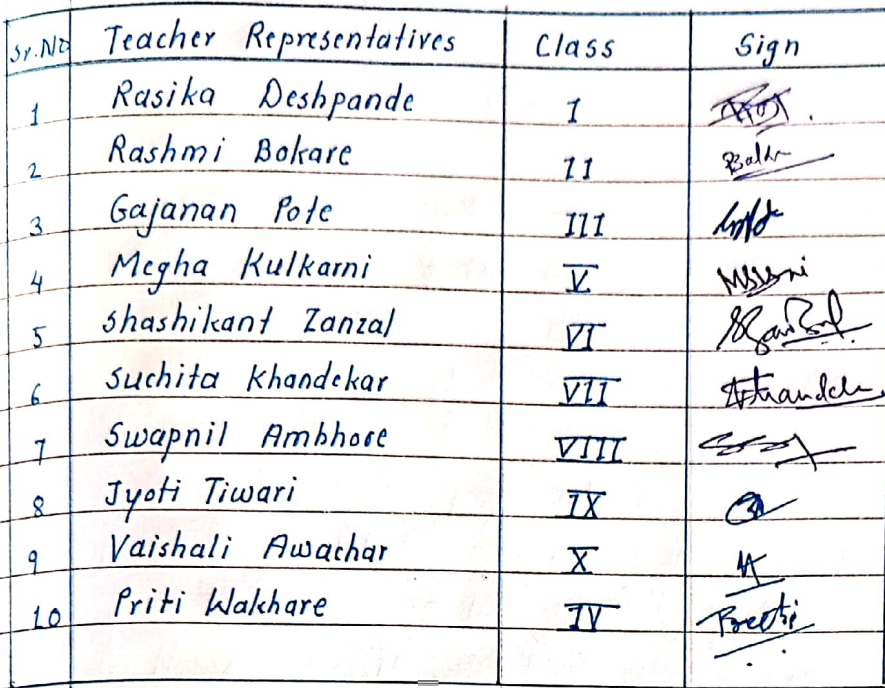 Sr.No Teacher Representatives Class Sign
1 Rasika Deshpande I
2 Rashmi Bokare II
3 Gajanan Pote III
4 Megha Kulkarni V
5 Shashikant Zanzal VI
6 Suchita Khandekar VII
7 Swapnil Ambhore VIII
8 Jyoti Tiwari IX
9 Vaishali Awachar X
10 Priti Wakhare IV Preeti